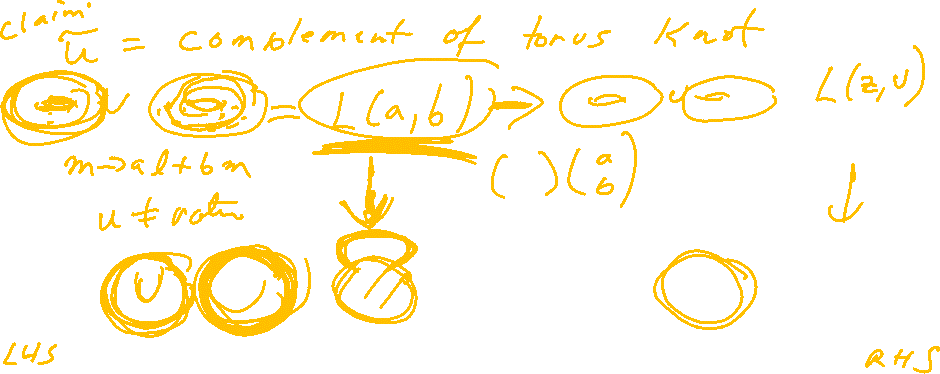 claim:
ũ = complement of torus knot
∪ = L(a,b) → ∪ L(z,v)
m→al+bm ( )(a b)
u ≠
U
LHS RHS